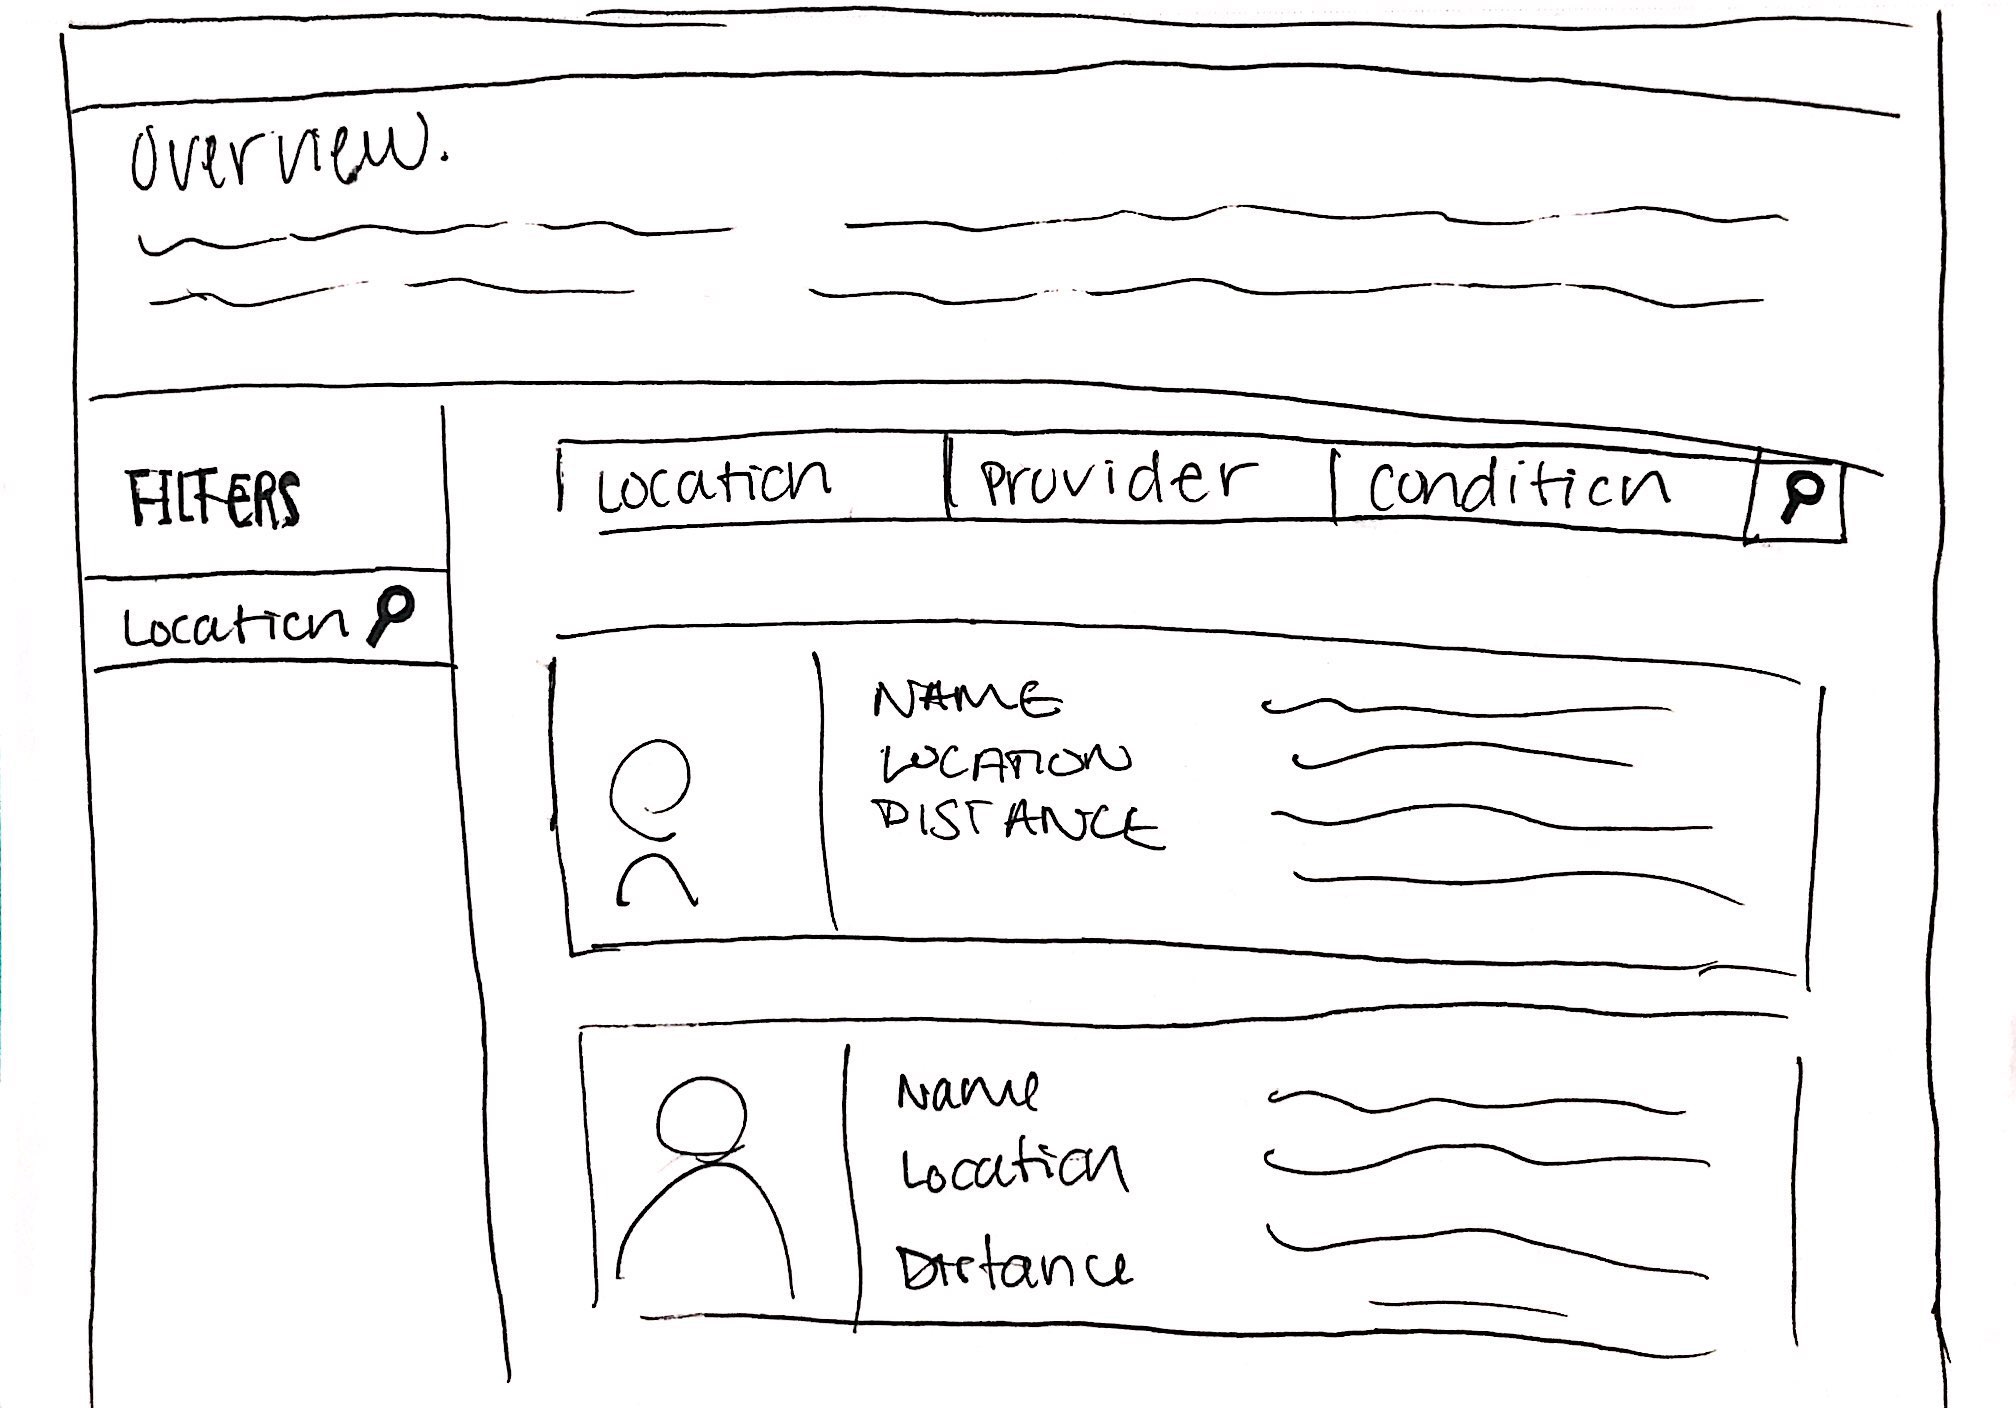 Overview.
FILTERS
Location
Location Provider Condition
NAME
LOCATION
DISTANCE
Name
Location
Distance